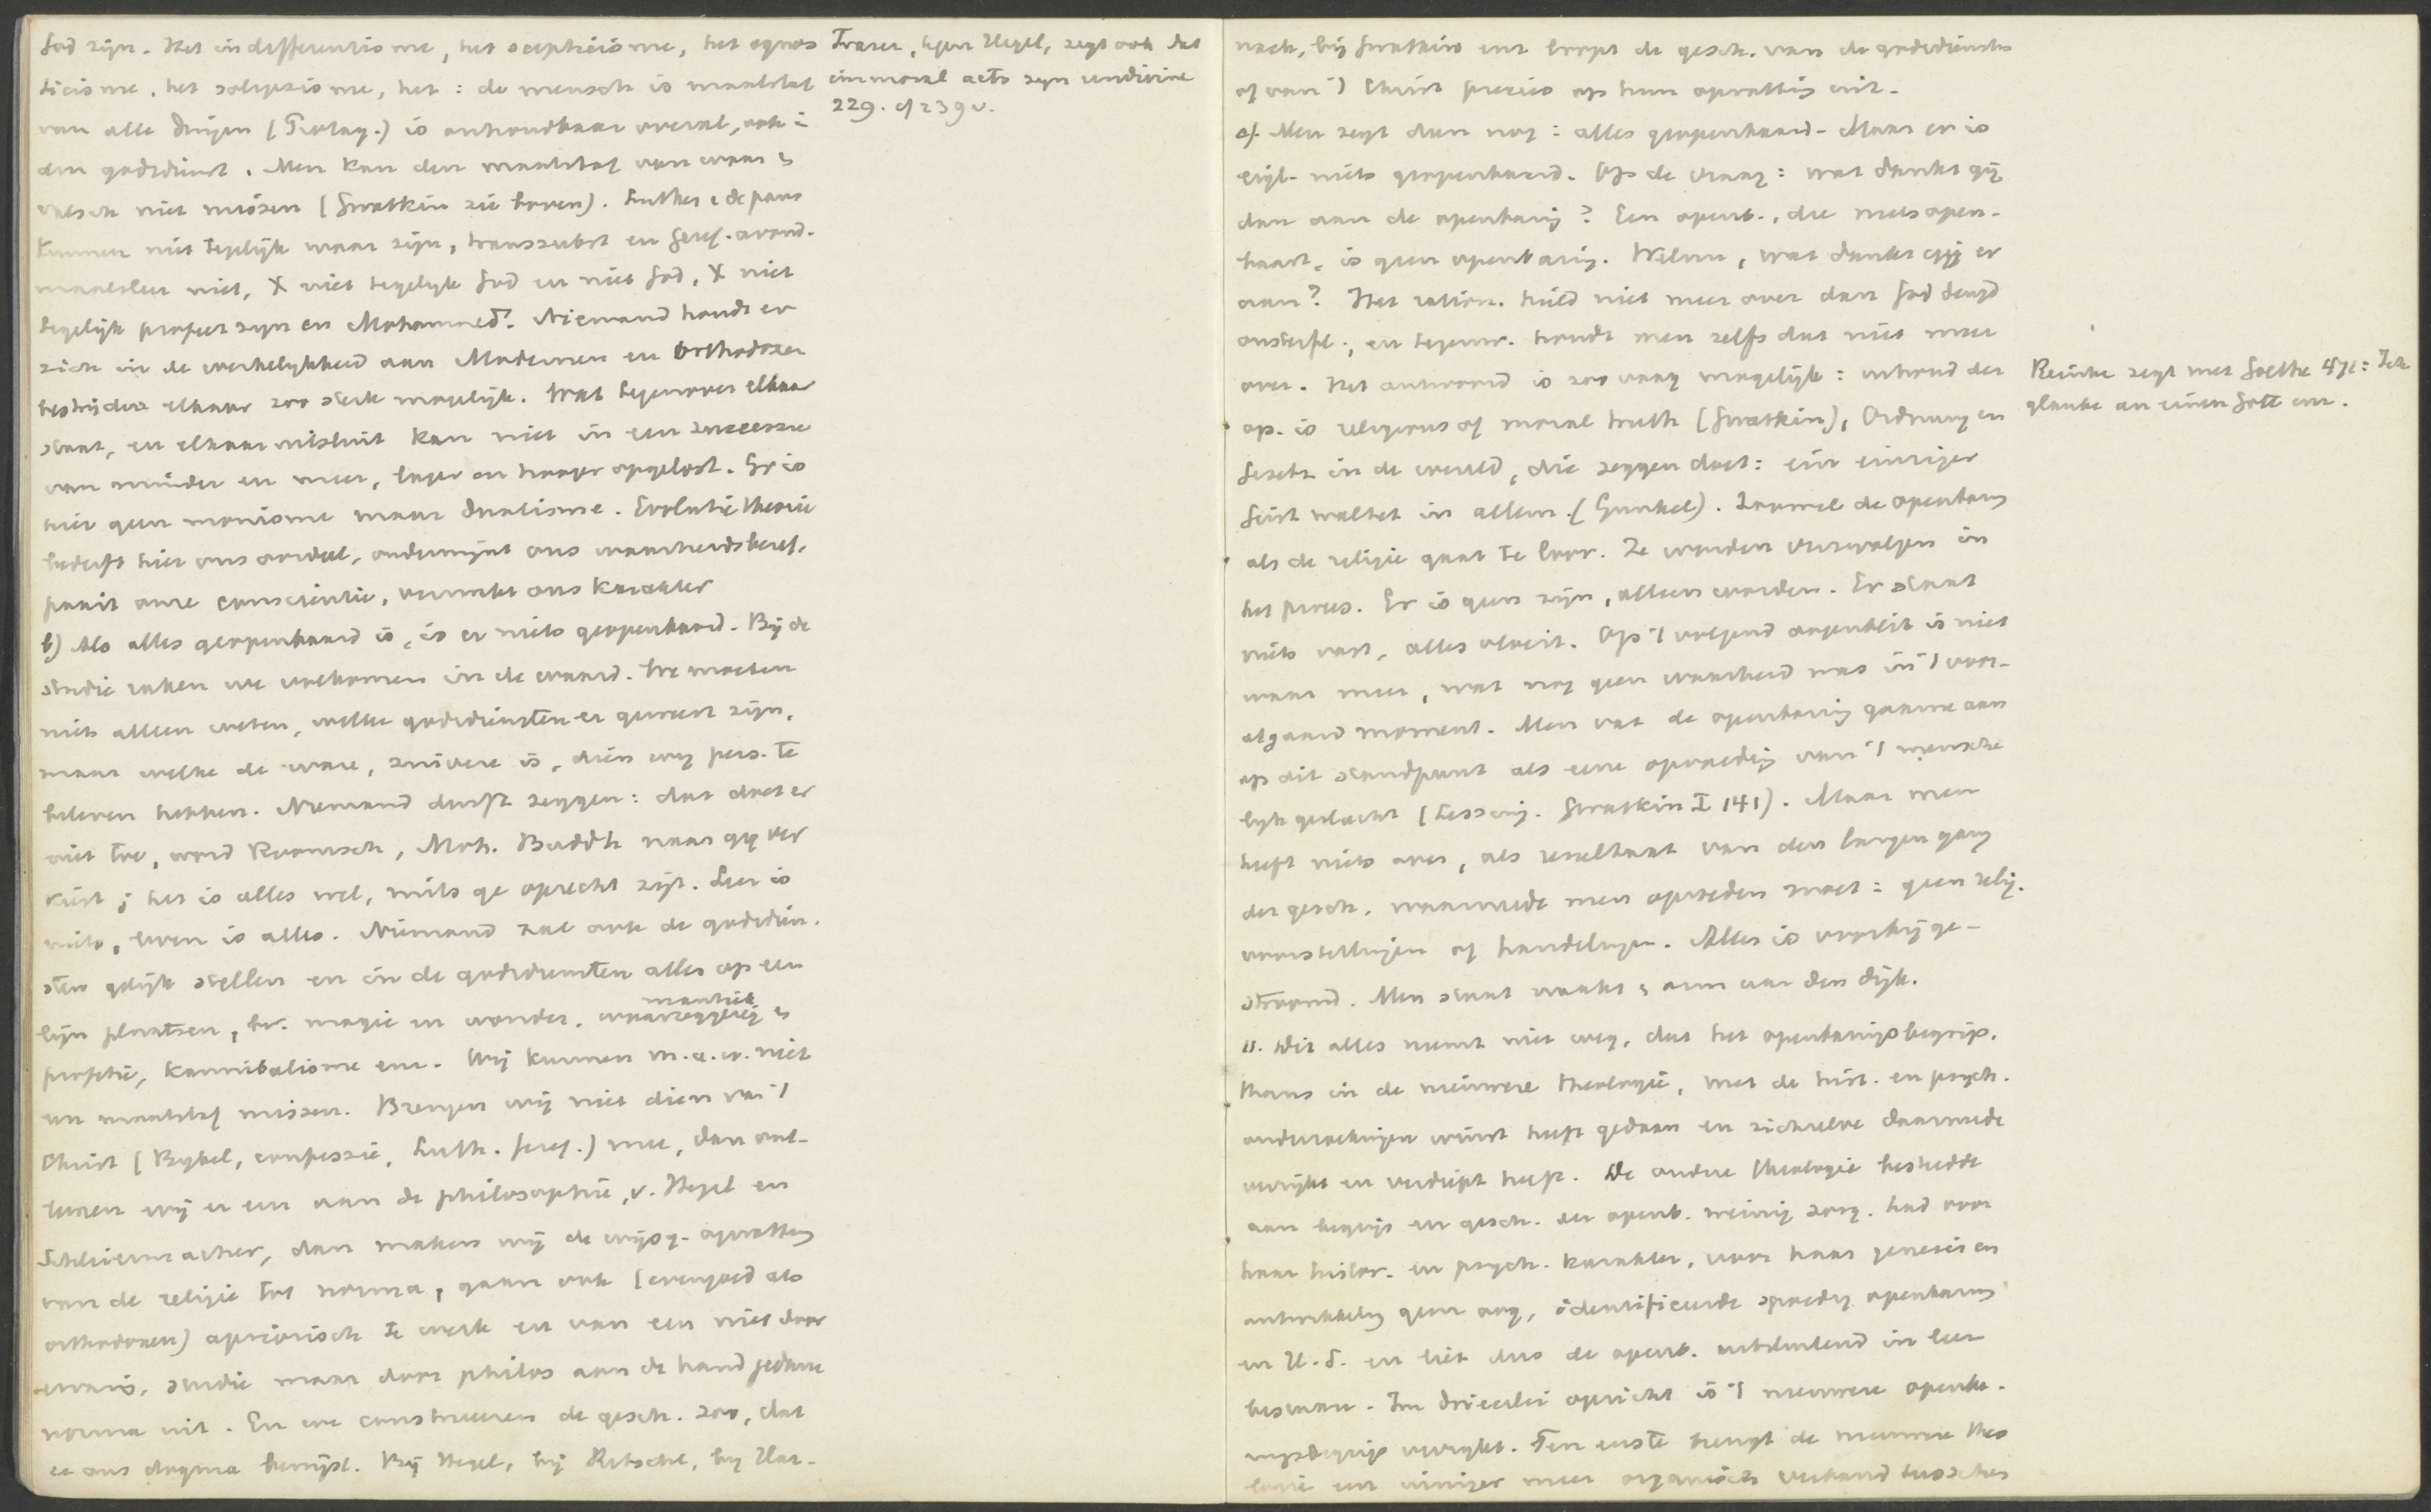 God zijn. Het indifferentisme, het scepticisme, het agnos
ticisme, het solipsisme, het: de mensch is maatstaf
van alle dingen (Protag.) is onhoudbaar overal, ook i
den godsdienst. Men kan den maatstaf van waar &
valsch niet missen (Gwatkin zie boven). Luther & de paus
kunnen niet tegelijk waar zijn, transsubst en Geref. avond-
maalsleer niet, X niet tegelijk God en niet God, X niet
tegelijk profeet zijn en Mohammed. Niemand houdt er
zich in de werkelijkheid aan. Modernen en orthodoxen
bestrijden elkaar zoo sterk mogelijk. Wat tegenover elkaar
staat, en elkaar uitsluit kan niet in een successie
van minder en meer, lager en hooger opgelost. Er is
hier geen monisme maar dualisme. Evolutie theorie
bederft hier ons oordeel, ondermijnt ons waarheidsbesef,
onze conscientie, ons karakter
b) Als alles geopenbaard is, is er niets geopenbaard. Bij de
studie raken we volkomen in de waard. We moeten
niet alleen weten, welke godsdiensten er geweest zijn,
maar welke de ware, zuivere is, dien wij pers. te
beleven hebben. Niemand durft zeggen: dat doet er
niet toe, word Roomsch, Moh. Buddh naar gij ver
kiest; het is alles wel, mits ge oprecht zijt. Leer is
niets, leven is alles. Niemand zal ook de godsdien-
sten gelijk stellen en in de godsdiensten alles op een
lijn plaatsen, bv. magie en wonder, waarzeggerij mantiek &
profetie, kannibalisme enz. Wij kunnen m.a.w. niet
een maatstaf missen. Brengen wij niet dien van 't
Christ (Bijbel, confessie, Luth. Geref.) mee, dan ont-
leenen wij er een aan de philosophie, v. Hegel en
Schleiermacher, dan maken wij de wijsg. opvatting
van de religie tot norma, gaan ook (evengoed als
orthodoxen) apriorisch te werk en van een niet door
studie maar door philos aan de hand gedane
norma uit. En we construeeren de gesch. zoo, dat
ze ons dogma bewijst. Bij Hegel, bij Ritschl, bij Har-
Fraser, tegen Hegel, zegt ook dat
immoral acts zijn undivine
229. cf 239 v.
nack, bij Gwatkin enz loopt de gesch. van de godsdiensten
of van 't Christ precies op hun opvatting uit.
c). Men zegt dan nog: alles geopenbaard. Maar er is
eigl. niets geopenbaard. Op de vraag: wat denkt gij
dan aan de openbaring? Een openb., die niets open-
baart, is geen openbaring. Welnu, wat denkt gij er
aan? Het ration. hield niet meer over dan God deugd
onsterfl., en tegenw. houdt men zelfs dat niet meer
over. Het antwoord is zoo vaag mogelijk: inhoud der
op. is religious of moral truth (Gwatkin), Ordnung en
Gesetz in de wereld, die zeggen doet: ein einziger
Geist waltet in allem. (Gunkel). Zoowel de openbaring
als de religie gaat te loor. Ze worden verzwolgen in
het proces. Er is geen zijn, alleen worden. Er staat
niets vast, alles vloeit. Op 't volgend oogenblik is niet
waar meer, wat nog geen waarheid was in 't voor-
afgaand moment. Men vat de openbaring gaarne aan
op dit standpunt als eene opvoeding van 't mensche
lijk geslacht (Lessing. Gwatkin I 141). Maar men
heeft niets over, als resultaat van den langen gang
der gesch. waarmede men optreden moet: geen relig.
voorstellingen of handelingen. Alles is voorbij ge-
stroomd. Men staat naakt & arm van den dijk.
11. Dit alles neemt niet weg, dat het openbaringsbegrip,
thans in de nieuwere theologie, met de hist. en psych.
onderzoekingen winst heeft gedaan en zichzelve daarmede
verrijkt en verdiept heeft. De oudere theologie besteedde
aan begrip en gesch. der openb. weinig zorg, had voor
haar histor. en psych. karakter, voor haar genesis en
ontwikkeling geen oog, identificeerde spoedig openbaring
en H.S. en liet dus de openb. uitsluitend in leer
bestaan. In drieerlei opzicht is 't nieuwere openba-
ringsbegrip verrijkt. Ten eerste brengt de nieuwere theo
logie een inniger meer organisch verband tusschen
Reinke zegt met Goethe 472: Ich
glaube an einen Gott enz.